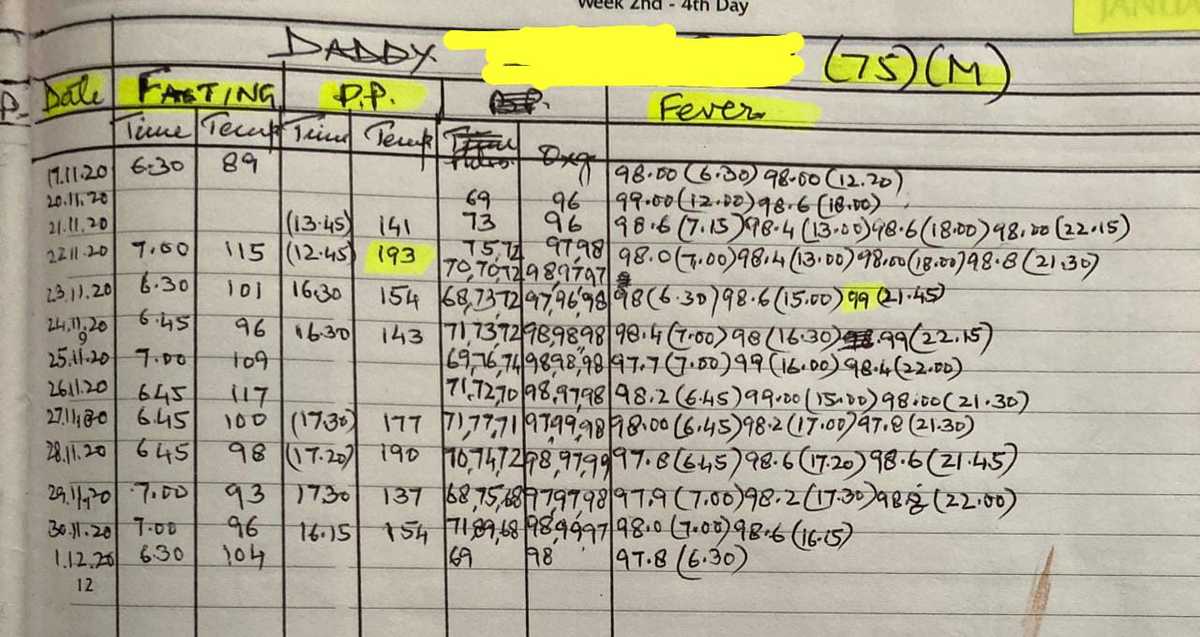 Week 2nd - 4th Day
JANU
DADDY (75) (M)
P. Date FASTING P.P. Fever
Time Temp Time Temp Oxg
19.11.20 6.30 89 98.00 (6.30) 98.00 (12.20)
20.11.20 69 96 99.00 (12.00) 98.6 (18.00)
21.11.20 (13.45) 141 73 96 98.6 (7.15) 98.4 (13.00) 98.6 (18.00) 98.00 (22.15)
22.11.20 7.00 115 (12.45) 193 75,72 97,98 98.0 (7.00) 98.4 (13.00) 98.00 (18.00) 98.8 (21.30)
70,70,72 98,97,97
23.11.20 6.30 101 16.30 154 68,73,72 97,96,98 98 (6.30) 98.6 (15.00) 99 (21.45)
24.11.20 6.45 96 16.30 143 71,73,72 98,98,98 98.4 (7.00) 98 (16.30) .99 (22.15)
9
25.11.20 7.00 109 69,76,74 98,98,98 97.7 (7.00) 99 (16.00) 98.4 (22.00)
26.11.20 6.45 117 71,72,70 98,97,98 98.2 (6.45) 99.00 (15.00) 98.00 (21.30)
27.11.20 6.45 100 (17.30) 177 71,77,71 97,99,98 98.00 (6.45) 98.2 (17.00) 97.8 (21.30)
28.11.20 6.45 98 (17.20) 190 70,74,72 98,97,99 97.8 (6.45) 98.6 (17.20) 98.6 (21.45)
29.11.20 7.00 93 17.30 137 68,75,68 97,97,98 97.9 (7.00) 98.2 (17.30) 98.8 (22.00)
30.11.20 7.00 96 16.15 154 71,89,68 98,99,97 98.0 (7.00) 98.6 (16.15)
1.12.20 6.30 104 69 98 97.8 (6.30)
12